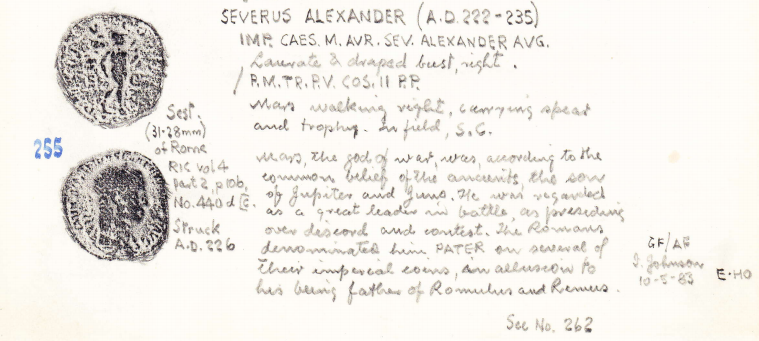 SEVERUS ALEXANDER (A.D. 222-235)
IMP. CAES. M. AVR. SEV. ALEXANDER AVG.
Laureate & draped bust, right.
/ P.M.TR.P.V. COS. II P.P.
Mars walking right, carrying spear
and trophy. In field, S.C.
Mars, the god of war, was, according to the
common belief of the ancients, the son
of Jupiter and Juno. He was regarded
as a great leader in battle, as presiding
over discord and contest. The Romans
denominated him PATER on several of
their imperial coins, in allusion to
his being father of Romulus and Remus.
See No. 262
255
Sest.
(31-28mm)
of Rome
RIC vol 4
part 2, p106,
No. 440 d
Struck
A.D. 226
GF/AF
I. Johnson
10-5-83
E-HO